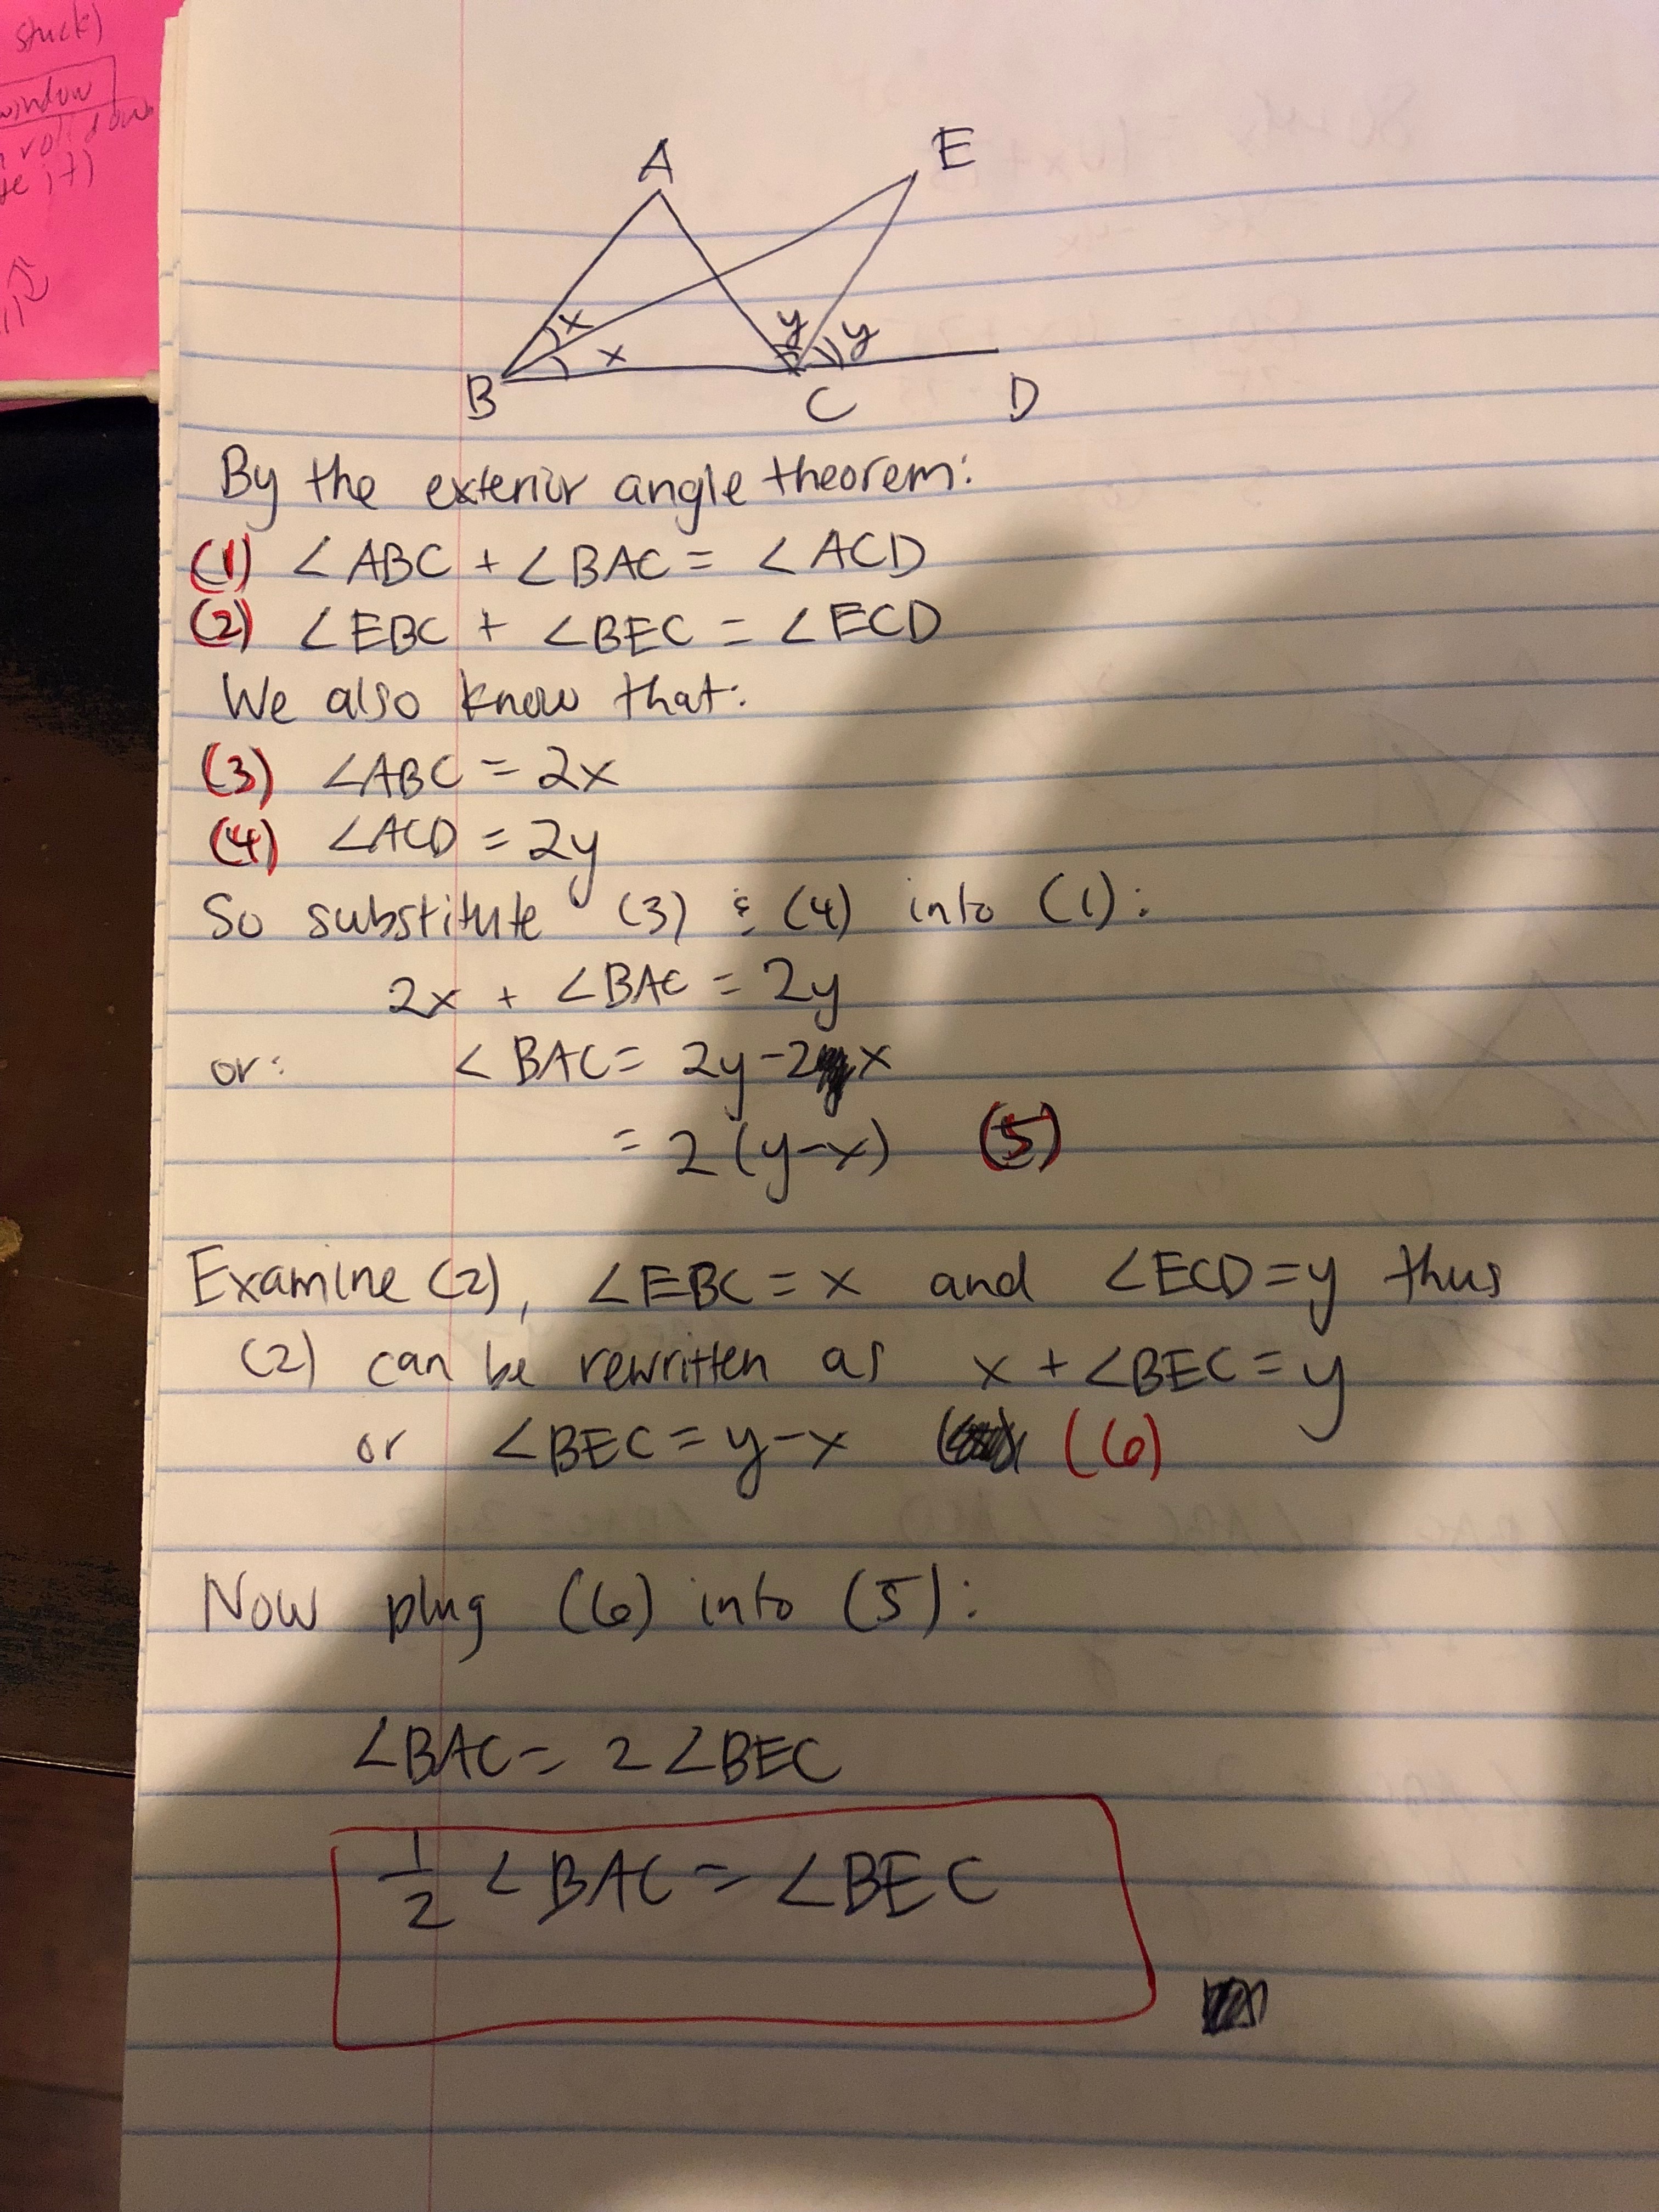 stuck)
window
roll down
it)
A
E
x
x
y
y
B
C
D
By the exterior angle theorem:
(1) ∠ABC + ∠BAC = ∠ACD
(2) ∠EBC + ∠BEC = ∠ECD
We also know that:
(3) ∠ABC = 2x
(4) ∠ACD = 2y
So substitute (3) & (4) into (1):
2x + ∠BAC = 2y
or: ∠BAC = 2y-2x
= 2(y-x) (5)
Examine (2), ∠EBC = x and ∠ECD = y thus
(2) can be rewritten as x + ∠BEC = y
or ∠BEC = y-x (6)
Now plug (6) into (5):
∠BAC = 2∠BEC
1/2 ∠BAC = ∠BEC